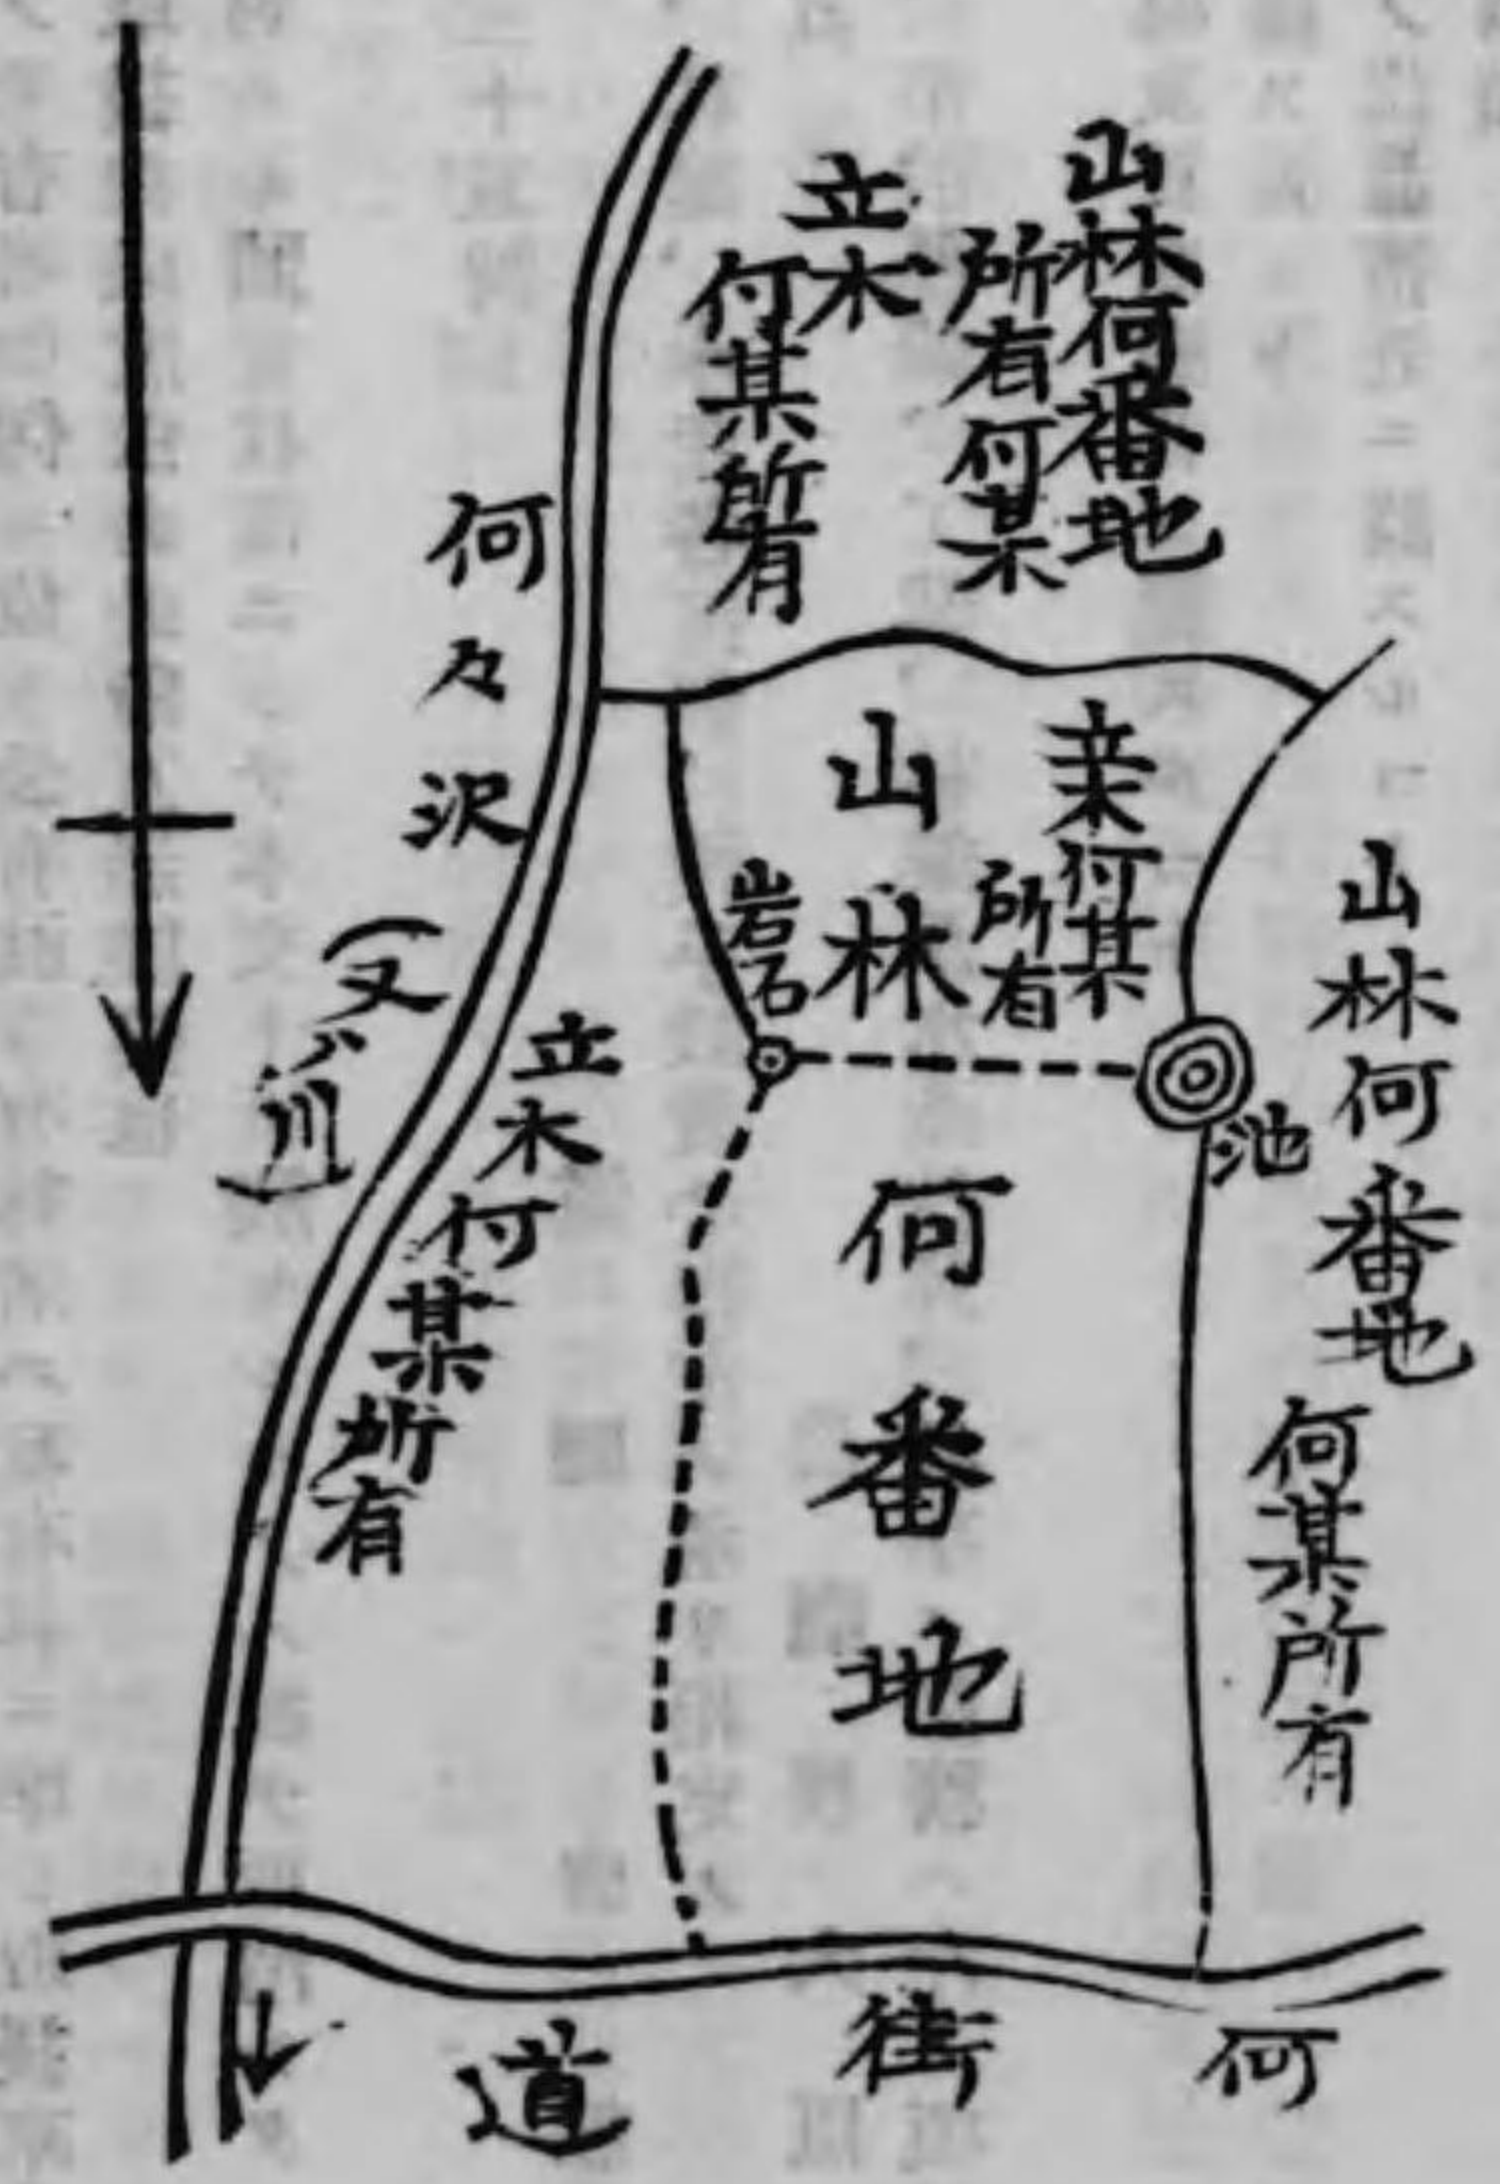 山林何番地
所有何某
立木
何某所有
何々沢
(又ハ川)
立木何某所有
山林
立木何某
所有
岩石
池
何番地
山林何番地
何某所有
何街道